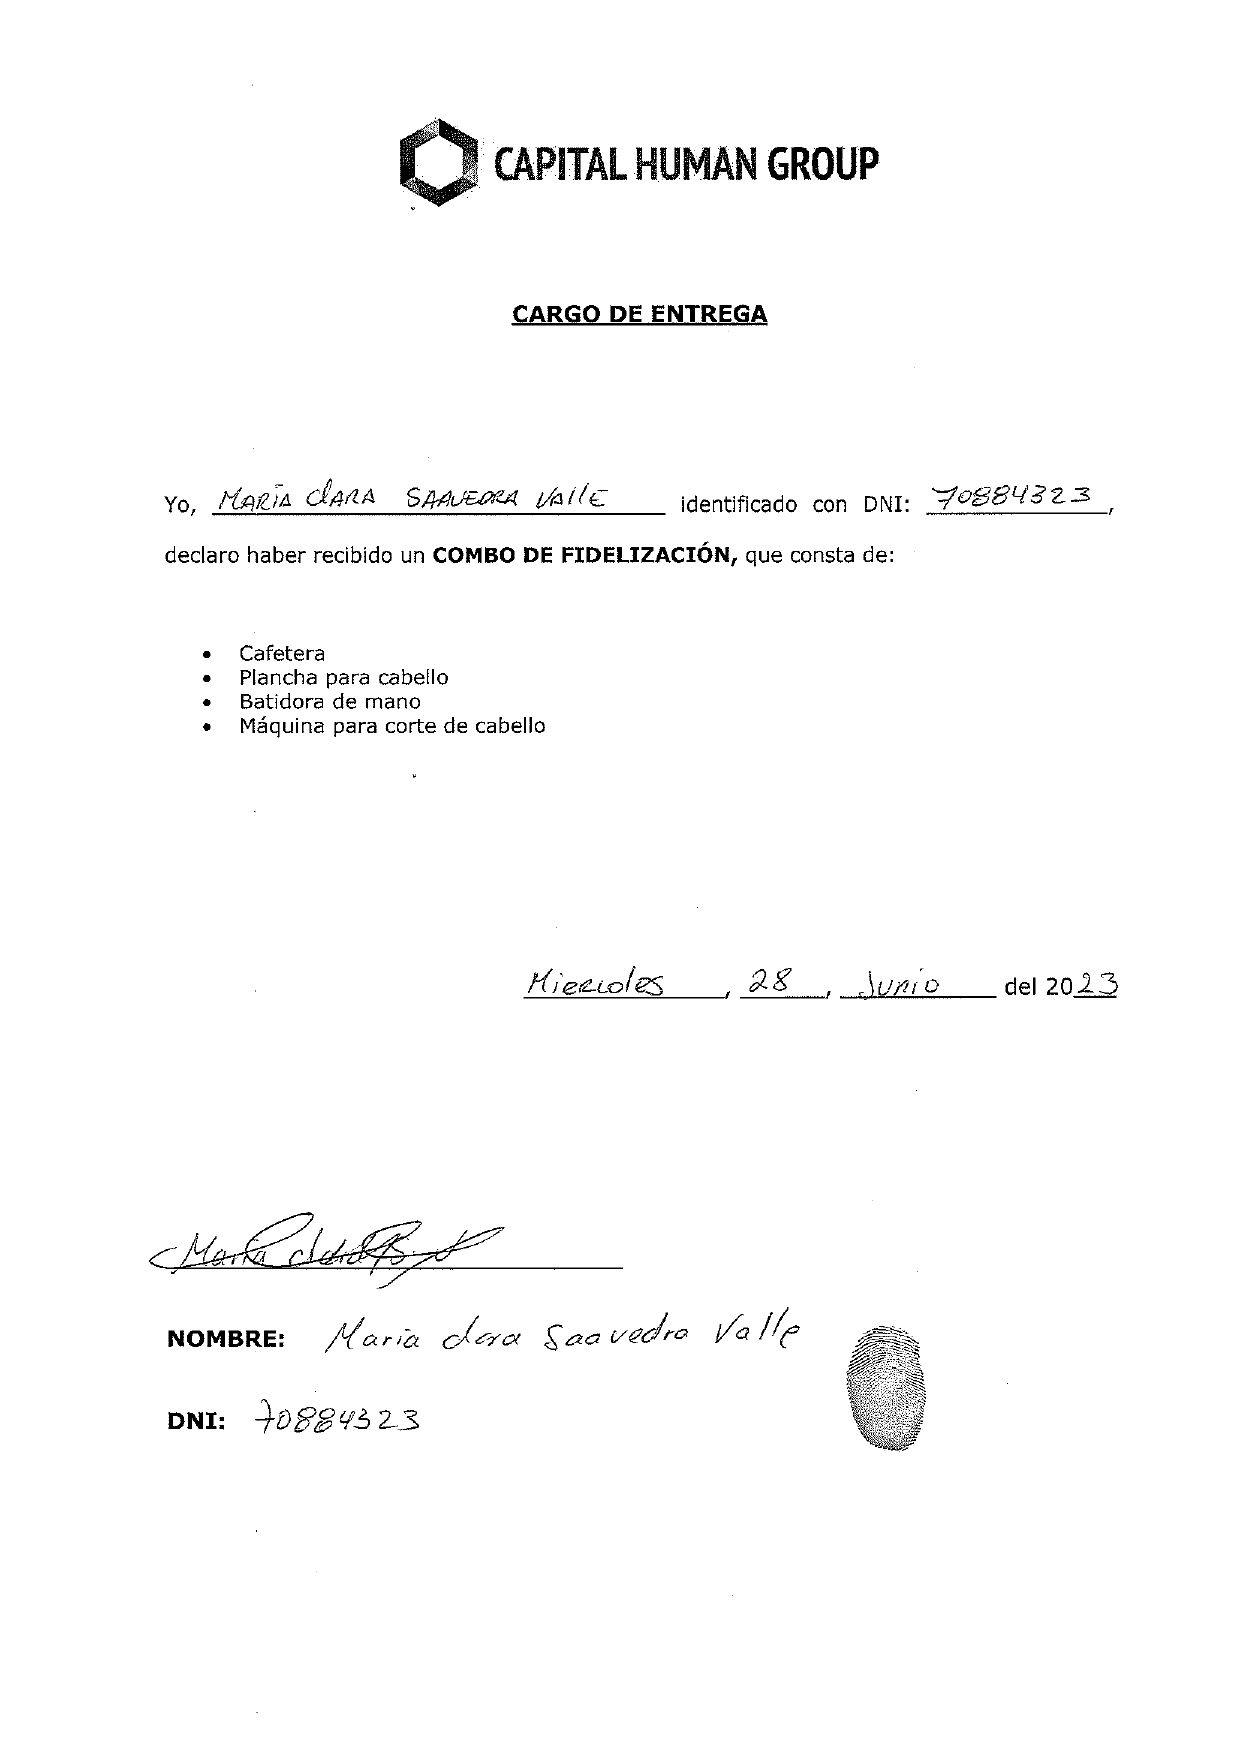 CAPITAL HUMAN GROUP
CARGO DE ENTREGA
Yo, MARÍA ClARA SAAVEDRA VallE identificado con DNI: 70884323,
declaro haber recibido un COMBO DE FIDELIZACIÓN, que consta de:
• Cafetera
• Plancha para cabello
• Batidora de mano
• Máquina para corte de cabello
Miercoles, 28, Junio del 2023
María Clara
NOMBRE: María clara Saavedra Valle
DNI: 70884323